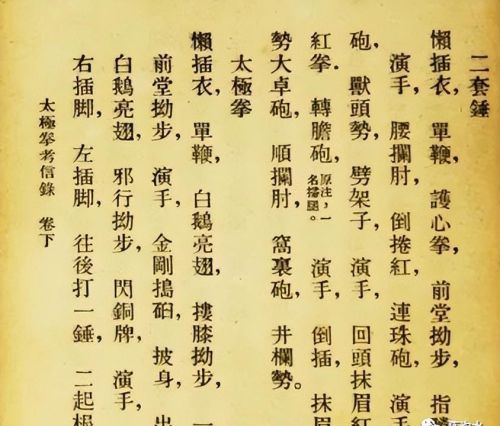 二套錘
懶插衣，單鞭，護心拳，前堂拗步，指
演手，腰攔肘，倒捲紅，連珠砲，演
砲，獸頭勢，劈架子，演手，回頭抹眉紅
紅拳．轉膽砲，原注，一名掃。演手，倒插，抹眉
勢大卓砲，順攔肘，窩裏砲，井欄勢。
太極拳
懶插衣，單鞭，白鵝亮翅，摟膝拗步，一
前堂拗步，演手，金剛搗碓，披身，出
白鵝亮翅，邪行拗步，閃銅牌，演手，
右插脚，左插脚，往後打一錘，二起
太極拳考信錄 卷下